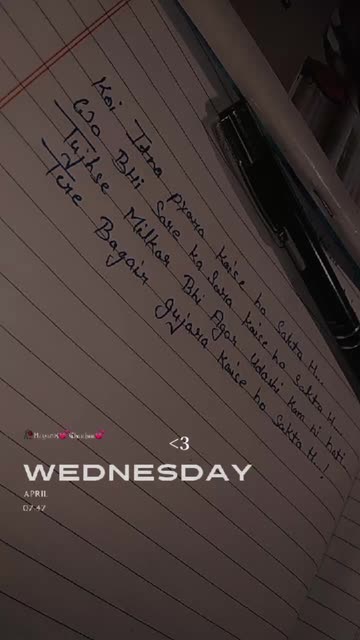 Koi Itna pyara kaise ho sakta H...
Wo Bhi Sare ka Sara kaise ho sakta H...
Tujhse Milkar Bhi Agar Udashi Kam ni hoti
Tere Bagair Gujara Kaise ho Sakta H...!
<3
WEDNESDAY
APRIL
07:47